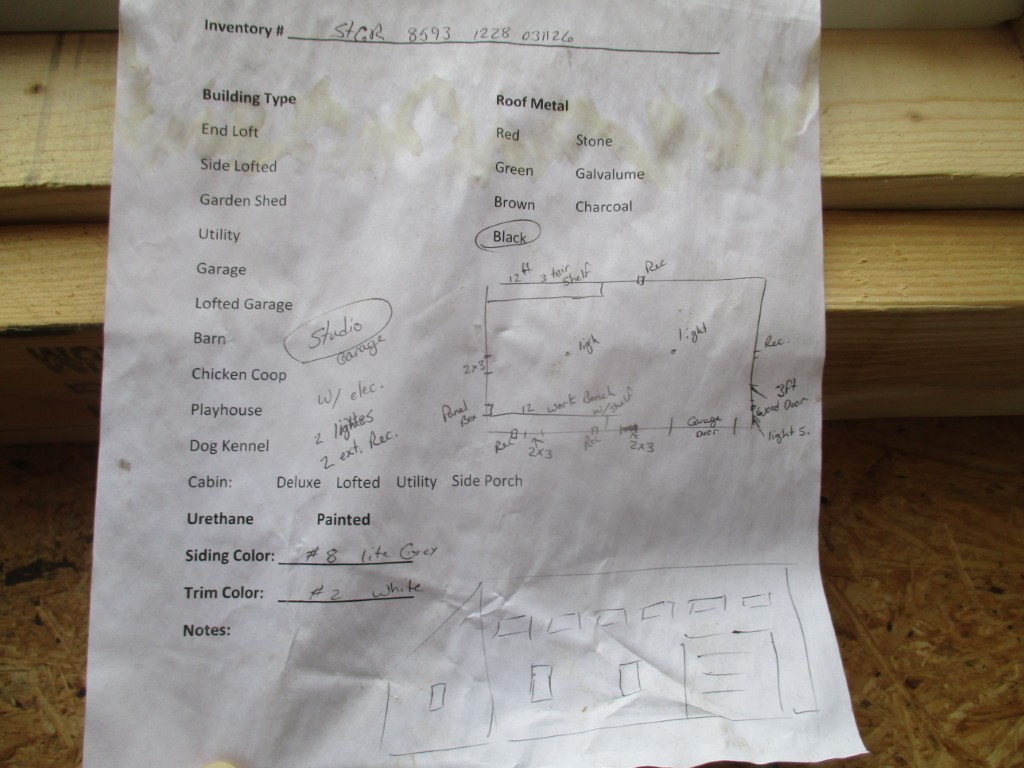 Inventory # StGR 8593 1228 031126
Building Type
End Loft
Side Lofted
Garden Shed
Utility
Garage
Lofted Garage
Barn
Chicken Coop
Playhouse
Dog Kennel
Studio
Garage
w/ elec.
2 lightes
2 ext. Rec.
Roof Metal
Red Stone
Green Galvalume
Brown Charcoal
Black
12ft 3 teir shelf
Rec
ligh
light
Rec.
2x3
3ft
Wood Door
light S.
Panel Box
12 work Bench
w/ shelf
Garage Door
Rec
2x3
Rec
2x3
Cabin: Deluxe Lofted Utility Side Porch
Urethane Painted
Siding Color: #8 lite Grey
Trim Color: #2 white
Notes: